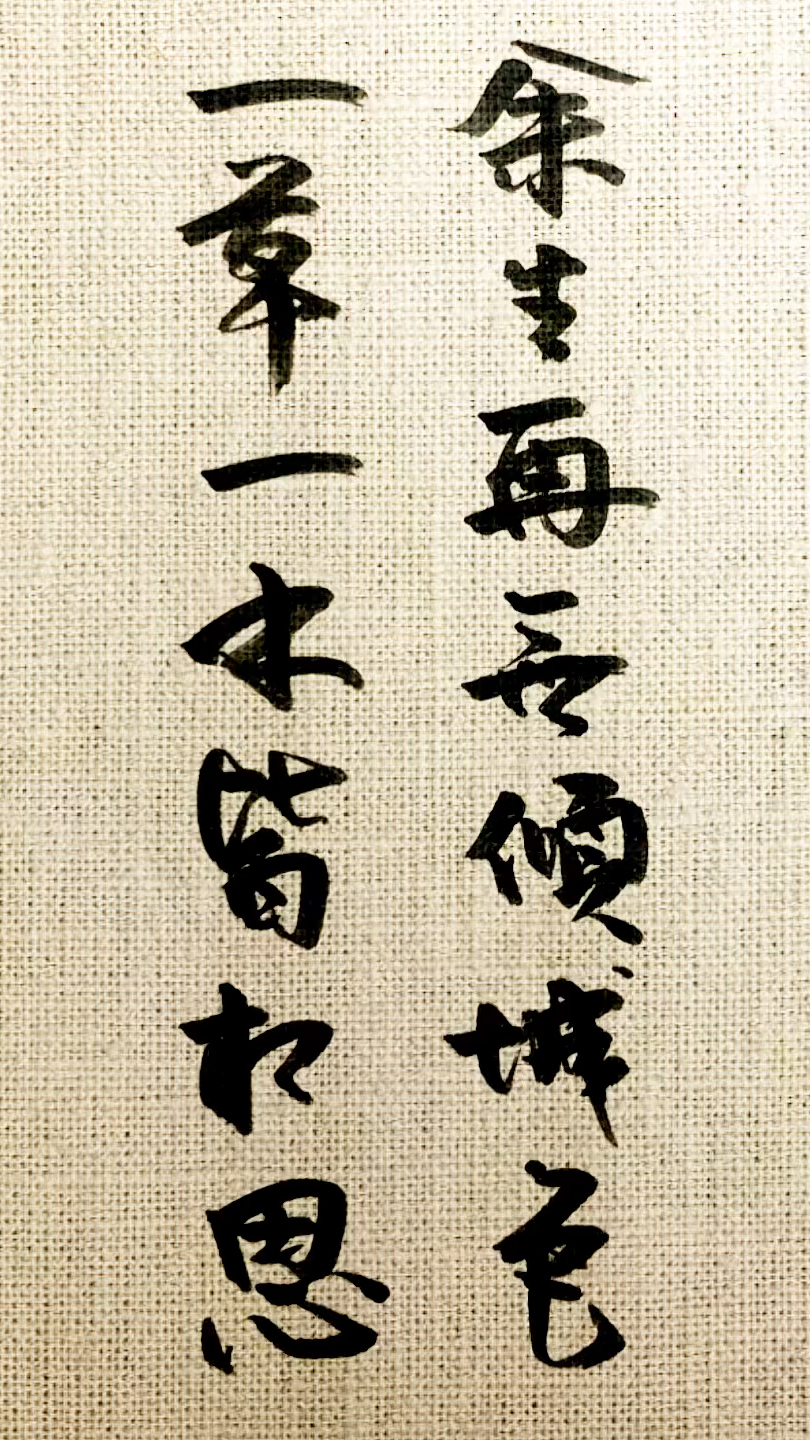 余生再无倾城色
一草一木皆相思